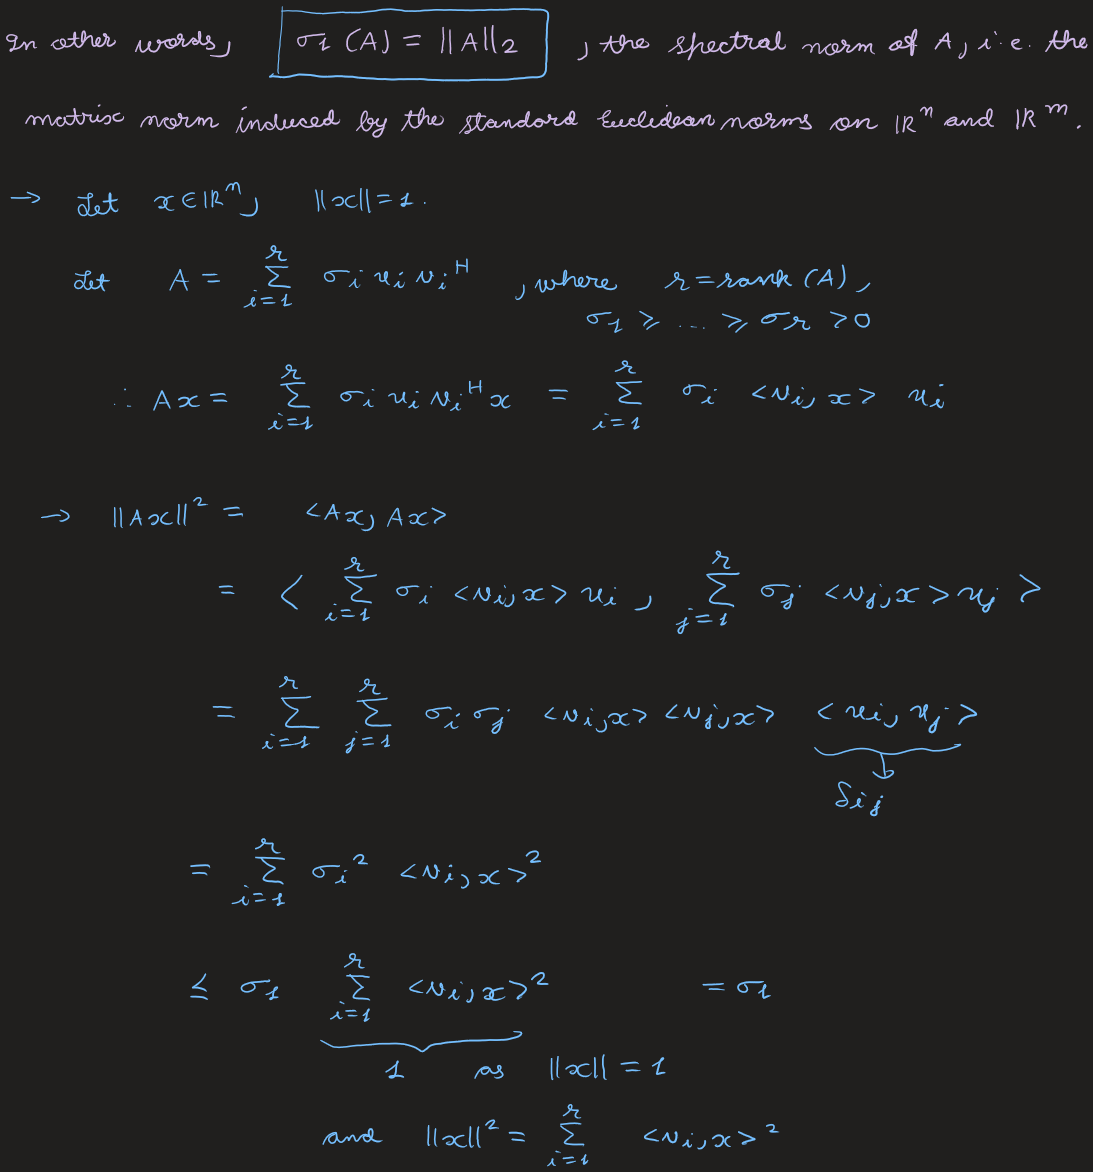 In other words, σ₁(A) = ||A||₂ , the spectral norm of A, i.e. the
matrix norm induced by the standard Euclidean norms on ℝⁿ and ℝᵐ.
→ Let x ∈ ℝⁿ, ||x|| = 1.
Let A = Σ_{i=1}^{r} σᵢ uᵢ vᵢᴴ , where r = rank(A),
σ₁ ⩾ ... ⩾ σᵣ > 0
∴ Ax = Σ_{i=1}^{r} σᵢ uᵢ vᵢᴴ x = Σ_{i=1}^{r} σᵢ <vᵢ, x> uᵢ
→ ||Ax||² = <Ax, Ax>
= < Σ_{i=1}^{r} σᵢ <vᵢ, x> uᵢ , Σ_{j=1}^{r} σⱼ <vⱼ, x> uⱼ >
= Σ_{i=1}^{r} Σ_{j=1}^{r} σᵢ σⱼ <vᵢ, x> <vⱼ, x> <uᵢ, uⱼ>
δᵢⱼ
= Σ_{i=1}^{r} σᵢ² <vᵢ, x>²
≤ σ₁ Σ_{i=1}^{r} <vᵢ, x>² = σ₁
1 as ||x|| = 1
and ||x||² = Σ_{i=1}^{r} <vᵢ, x>²